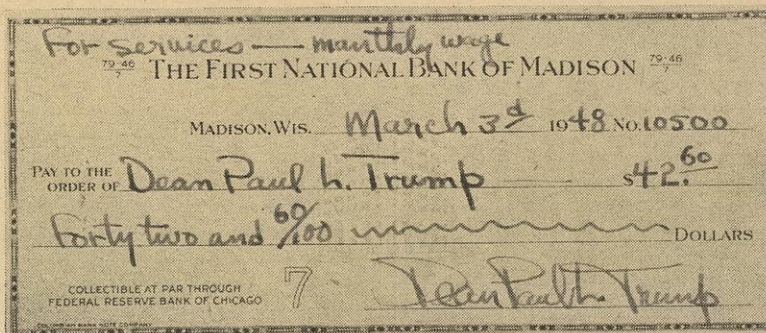 For services — monthly wage
79-46/7 THE FIRST NATIONAL BANK OF MADISON 79-46/7
MADISON, WIS. March 3d 1948 No. 10500
PAY TO THE ORDER OF Dean Paul L. Trump $42.60
Forty two and 60/100 DOLLARS
COLLECTIBLE AT PAR THROUGH
FEDERAL RESERVE BANK OF CHICAGO 7 Dean Paul L. Trump
COLUMBIAN BANK NOTE COMPANY